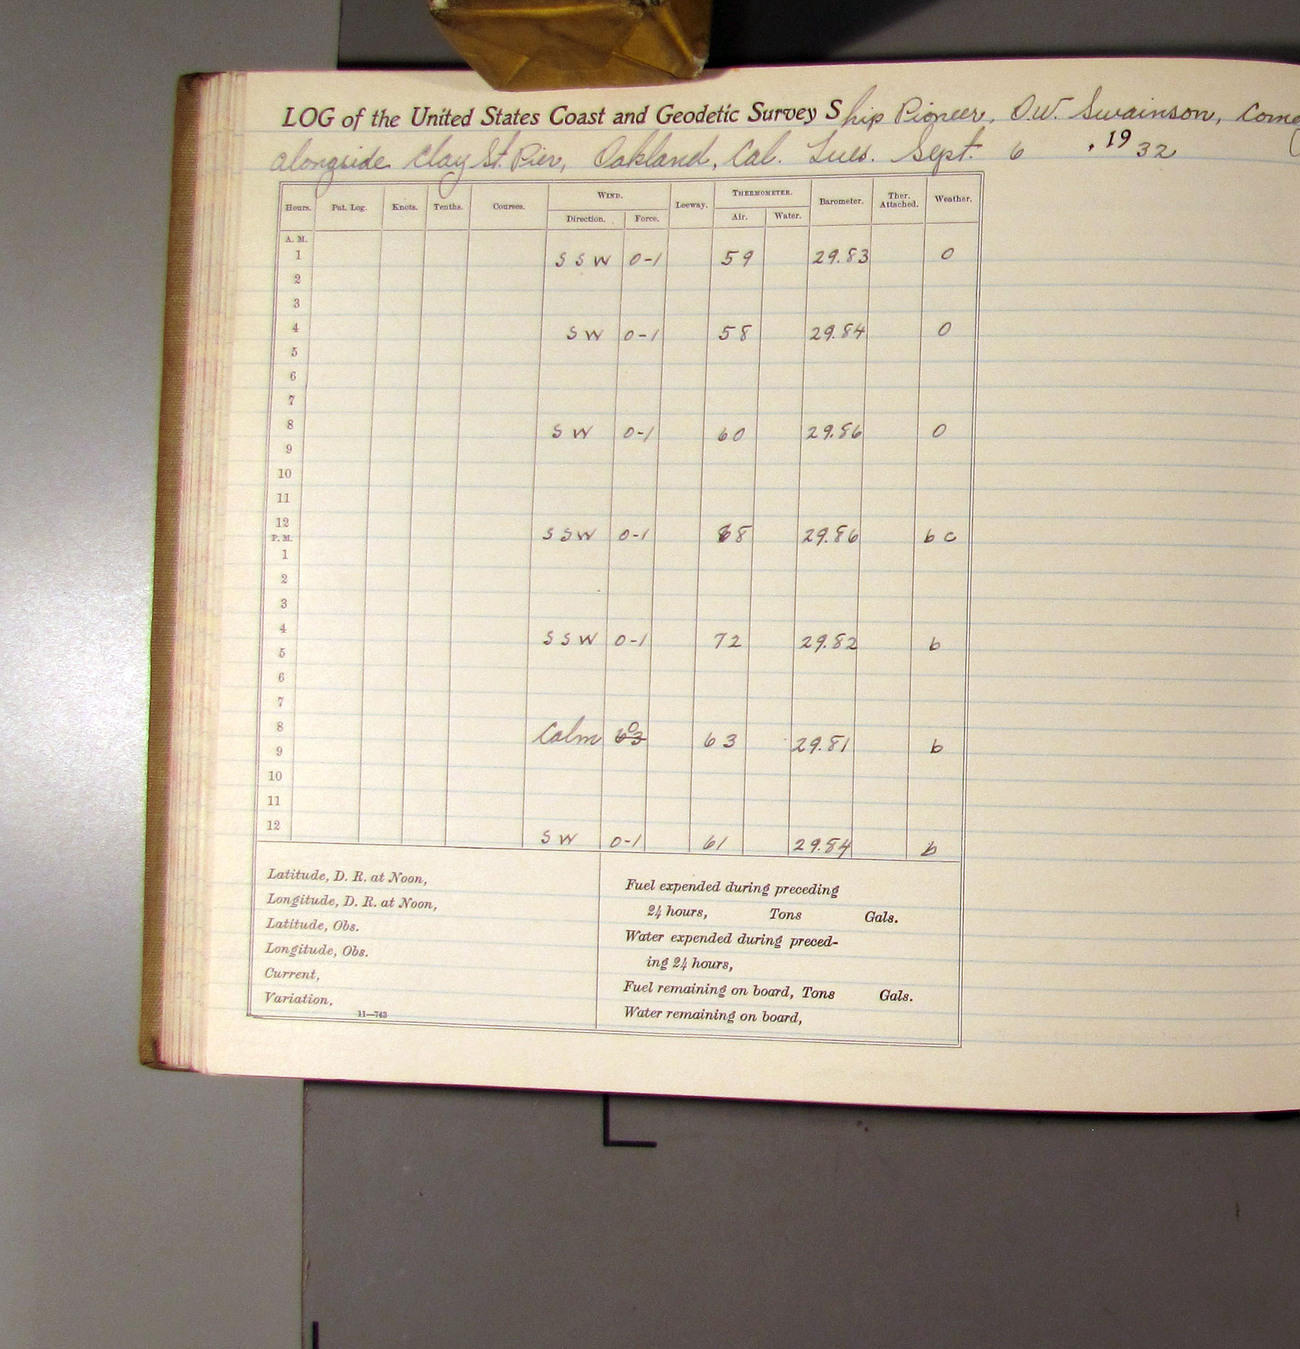 LOG of the United States Coast and Geodetic Survey Ship Pioneer, O.W. Swainson, Comdg
alongside Clay St. Pier, Oakland, Cal. Tues. Sept. 6, 1932
Hours. Pat. Log. Knots. Tenths. Courses. WIND. Leeway. THERMOMETER. Barometer. Ther. Attached. Weather.
Direction. Force. Air. Water.
A. M.
1 SSW 0-1 59 29.83 0
2
3
4 SW 0-1 58 29.84 0
5
6
7
8 SW 0-1 60 29.86 0
9
10
11
12 SSW 0-1 68 29.86 bc
P. M.
1
2
3
4 SSW 0-1 72 29.82 b
5
6
7
8 Calm 0 63 29.81 b
9
10
11
12 SW 0-1 61 29.84 b
Latitude, D. R. at Noon,
Longitude, D. R. at Noon,
Latitude, Obs.
Longitude, Obs.
Current,
Variation,
11—743
Fuel expended during preceding
24 hours, Tons Gals.
Water expended during preced-
ing 24 hours,
Fuel remaining on board, Tons Gals.
Water remaining on board,